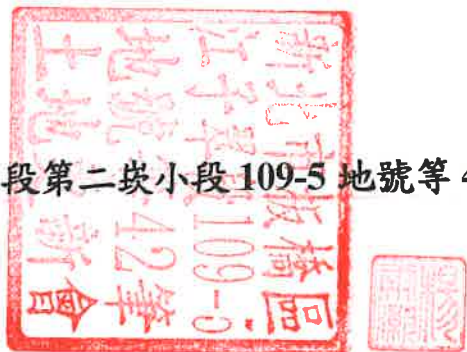 段第二崁小段 109-5 地號等 4
新北市板橋區
江子翠段109-5
地號等42筆
土地更新會